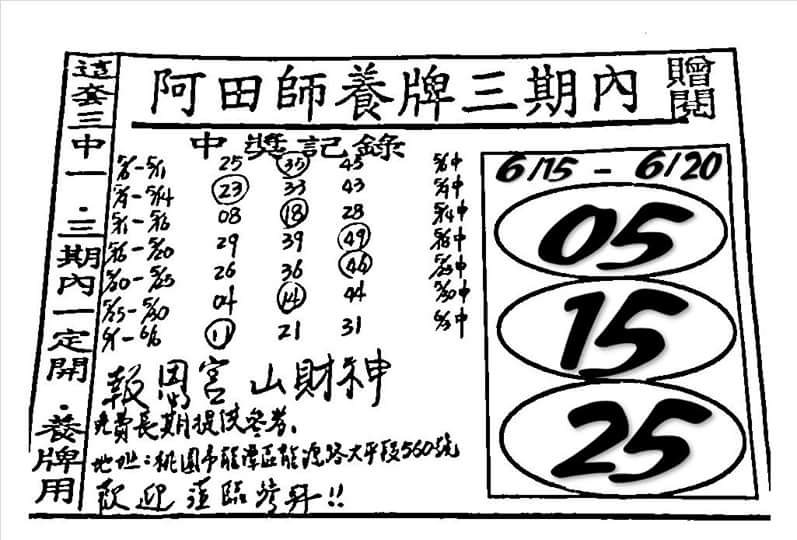 阿田師養牌三期內
贈閱
這套三中一．三期內一定開．養牌用
中獎記錄
25 35 45
5/9-5/14 23 33 43 5/9中
5/11-5/16 08 18 28 5/14中
5/16-5/20 29 39 49 5/16中
5/20-5/25 26 36 46 5/25中
5/25-5/30 04 14 44 5/30中
6/1-6/6 11 21 31 6/3中
6/15 - 6/20
05
15
25
報恩宮 山財神
免費長期提供參考、
地址：桃園市龍潭區龍源路大平段560號
歡迎蒞臨參拜!!